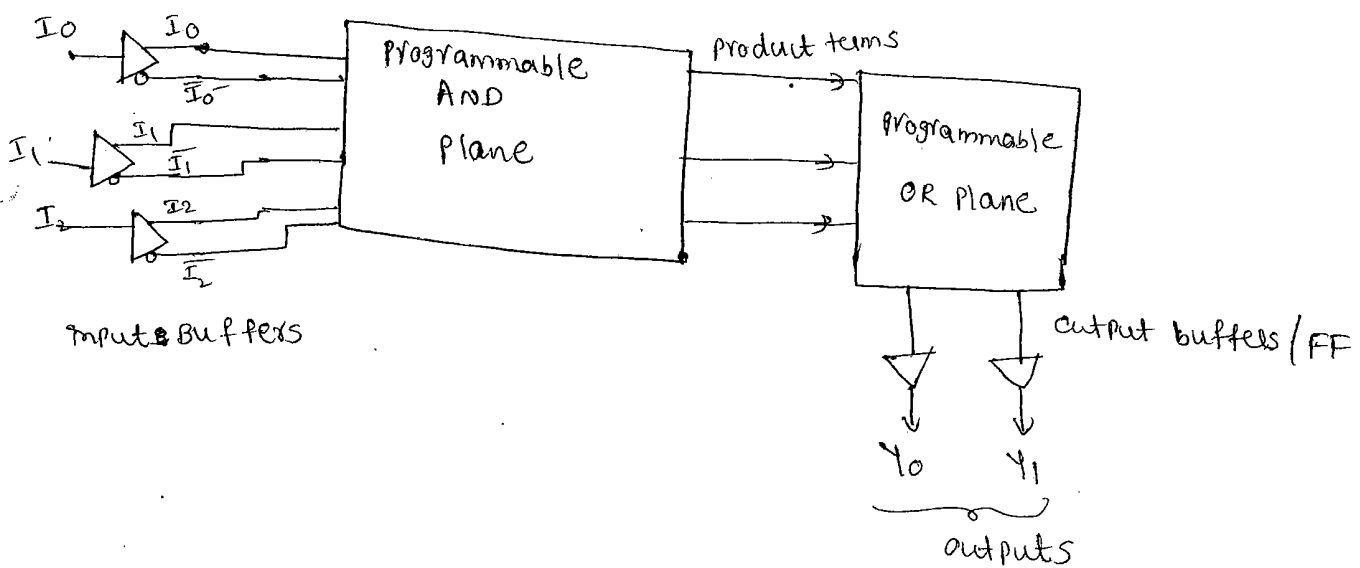 I0
I0
I̅0̅
I1
I1
I̅1̅
I2
I2
I̅2̅
Input Buffers
Programmable
AND
Plane
Product terms
Programmable
OR Plane
output buffers/FF
Y0 Y1
outputs